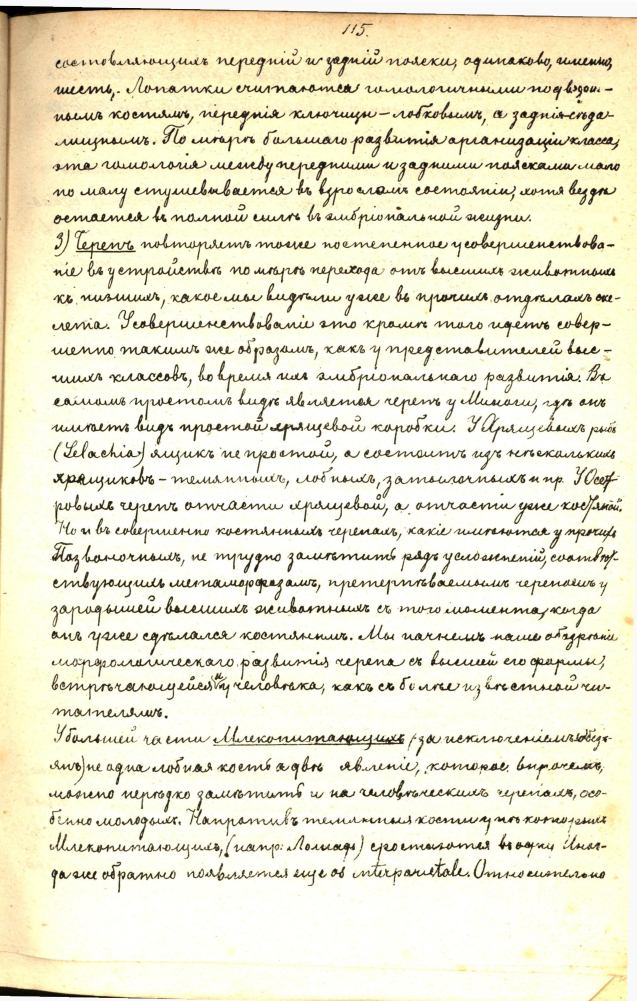 115.
составляющихъ передній и задній пояски, одинаково, именно,
шесть. Лопатки считаются гомологичными подвздош-
нымъ костямъ, переднія ключицы – лобковымъ, а заднія – сѣда-
лищнымъ. По мѣрѣ большаго развитія организаціи класса,
эта гомологія между передними и задними поясками мало
по малу стушевывается въ взросломъ состояніи, хотя вездѣ
остается въ полной силѣ въ эмбріональной жизни.
3) Черепъ повторяетъ тоже постепенное усовершенствова-
ніе въ устройствѣ по мѣрѣ перехода отъ высшихъ животныхъ
къ низшимъ, какое мы видѣли уже въ прочихъ отдѣлахъ ске-
лета. Усовершенствованіе это кромѣ того идетъ совер-
шенно такимъ же образомъ, какъ у представителей выс-
шихъ классовъ, во время ихъ эмбріональнаго развитія. Въ
самомъ простомъ видѣ является черепъ у Миноги, гдѣ онъ
имѣетъ видъ простой хрящевой коробки. У Хрящевыхъ рыбъ
(Selachia) ящикъ не простой, а состоитъ изъ нѣсколькихъ
хрящиковъ – темянныхъ, лобныхъ, затылочныхъ и пр. У Осет-
ровыхъ черепъ отчасти хрящевой, а отчасти уже костяной.
Но и въ совершенно костянныхъ черепахъ, какіе имѣются у прочихъ
Позвоночныхъ, не трудно замѣтить рядъ усложненій, соотвѣт-
ствующихъ метаморфозамъ, претерпѣваемымъ черепомъ у
зародышей высшихъ животныхъ съ того момента, когда
онъ уже сдѣлался костянымъ. Мы начнемъ наше обозрѣніе
морфологическаго развитія черепа съ высшей его формы,
встрѣчающейся у человѣка, какъ съ болѣе извѣстной чи-
тателямъ.
У большей части Млекопитающихъ (за исключеніемъ обезь-
янъ) не одна лобная кость а двѣ явленіе, которое впрочемъ,
можно нерѣдко замѣтить и на человѣческихъ черепахъ, осо-
бенно молодыхъ. Напротивъ темянныя кости у нѣкоторыхъ
Млекопитающихъ, (напр: Лошадь) сростаются въ одну. Иног-
да же обратно появляется еще os interparietale. Относительно